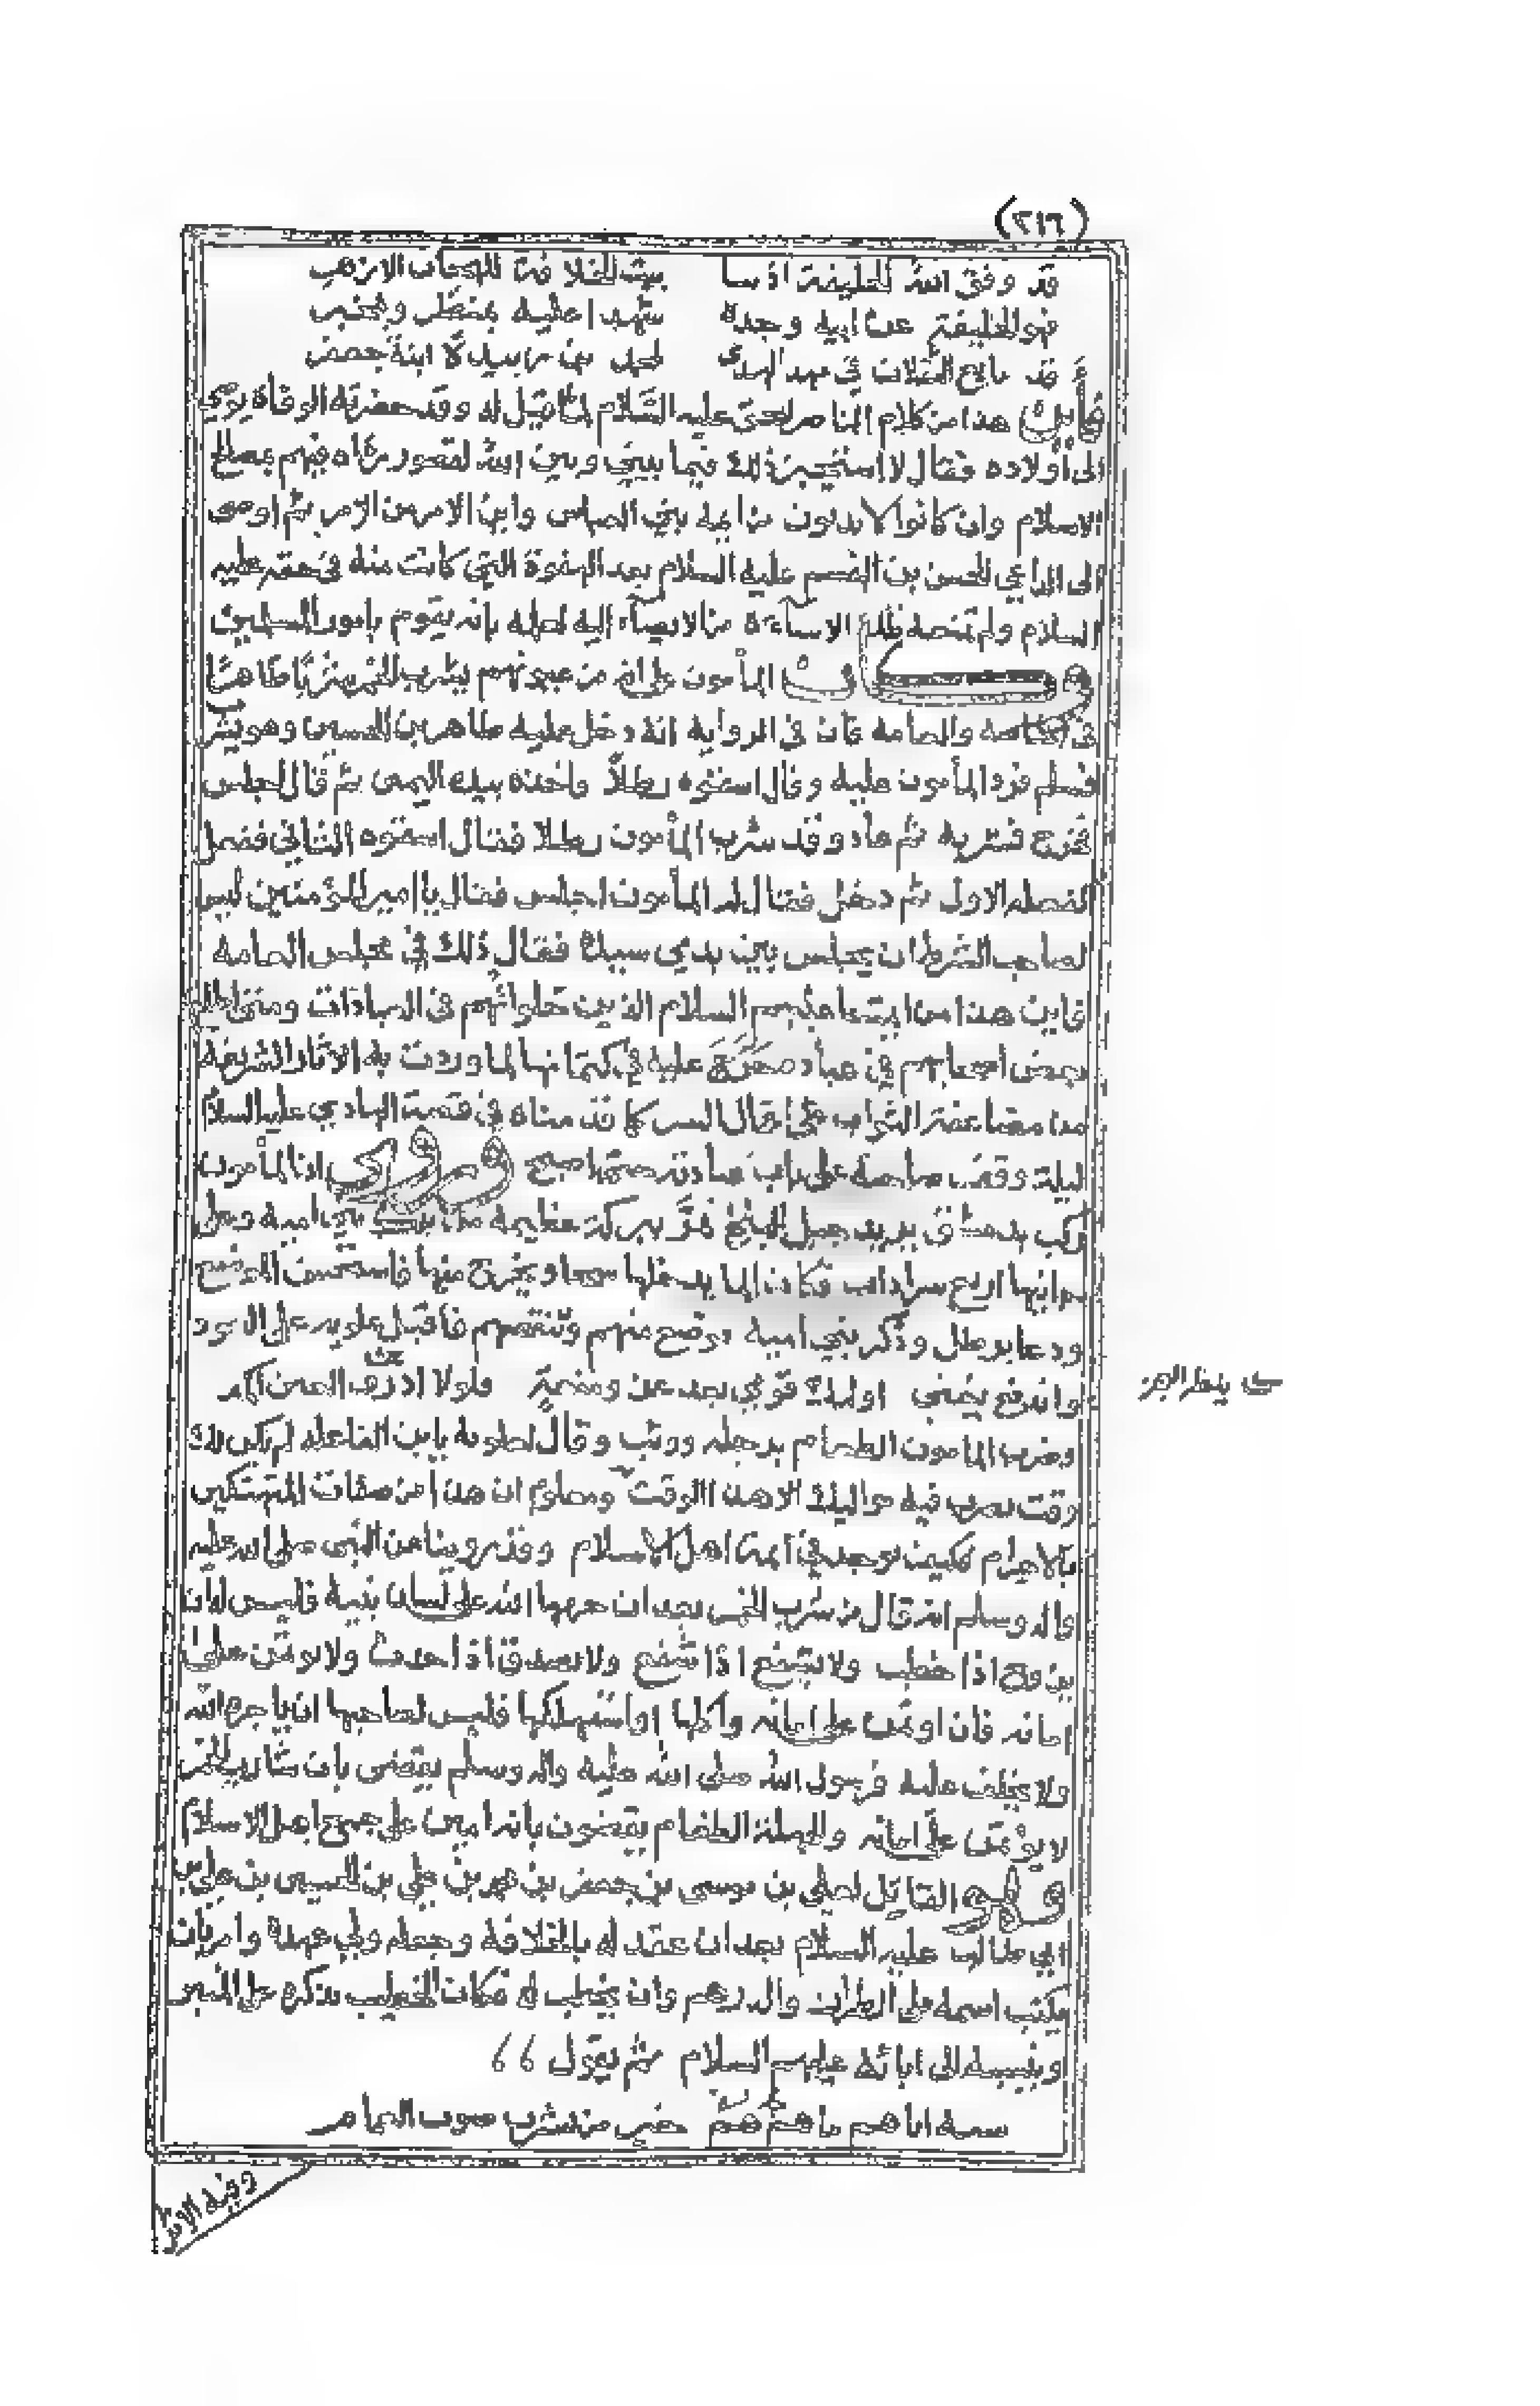 (٢١٦)
قد وفق الله الخليفة اذ بنا بيت الخلافة للهجان الازهر
فهو الخليفة عن ابيه وجده شهدا عليه بمنظر وبمخبر
قد بايع الثقلان في مهد الهدى لمحمد بن زبيدة ابنة جعفر
فأين هذا من كلام الناصر للحق عليه السلام لما قيل له وقد حضرته الوفاة توصي
الى اولاده فقال لا استخير ذلك فيما بيني وبين الله تعالى فيهم يصلح
الاسلام وان كانوا لا بدون من ايمة بني العباس واين الامر من الامر ثم اوصى
الى الداعي الحسن بن القسم عليه السلام بعد الهفوة التي كانت منه في حقه عليه
السلام ولم تمنعه تلك الاساءة من الايصاء اليه لعلمه بانه يقوم بامور المسلمين
وكان المأمون على انه من عيونهم يشرب الخمر شربا ظاهرا
في الخاصة والعامة فان في الرواية انه دخل عليه طاهر بن الحسين وهو يشرب
فسلم فرد المأمون عليه وقال اسقوه رطلا واخذه بيده اليمنى ثم قال اجلس
فخرج فشربه ثم عاد وقد شرب المأمون رطلا فقال اسقوه الثاني ففعل
كفعله الاول ثم دخل فقال له المأمون اجلس فقال يا امير المؤمنين ليس
لصاحب الشرط ان يجلس بين يدي سيده فقال ذلك في مجلس العامة
فاين هذا من ايمتنا عليهم السلام الذين خلواتهم في العبادات ومتى اطلع
بعض اصحابهم في عبادة حرج عليه في كتمانها لما وردت به الاثار الشريفة
من مضاعفة الثواب على اعمال السر كما قد مناه في قصة الهادي عليه السلام
ليلة وقف صاحبه على باب عبادته حتى اصبح وروي ان المأمون
ركب بدمشق يريد جبل الثلج فمر ببركة عظيمة من برك بني امية وعلى
جوانبها اربع سروات وكان الماء يدخلها سيحا ويخرج منها فاستحسن الموضع
ودعا برطل وذكر بني امية فوضع منهم وتنقصهم فاقبل علويه على العود
واندفع يغني اولئك قومي بعد عز ومنعة فلولا اذرف العين اكمد
وضرب المأمون الطعام برجله ووثب وقال لعلويه يا ابن الفاعلة لم يكن لك
وقت تذكر فيه مواليك الا هذا الوقت ومعلوم ان هذا من صفات المتهتكين
بالاجرام فكيف توجد في ايمة اهل الاسلام وقد روينا عن النبي صلى الله عليه
واله وسلم انه قال من شرب الخمر بعد ان حرمها الله على لسان نبيه فليس له ان
يزوج اذا خطب ولا يشفع اذا شفع ولا يصدق اذا حدث ولا يؤتمن على
امانه فان اوتمن على امانه واكلها او استهلكها فليس لصاحبها ان ياجره الله
ولا يخلف عليه فرسول الله صلى الله عليه واله وسلم يقضي بان شارب الخمر
لا يؤتمن على امانه والجهلة الطغام يقضون بانه امين على جميع اهل الاسلام
وهو القائل لعلي بن موسى بن جعفر بن محمد بن علي بن الحسين بن علي بن
ابي طالب عليه السلام بعد ان عقد له بالخلافة وجعله ولي عهده وامر بان
يكتب اسمه على الطراز والدرهم وان يخطب له فكان الخطيب يذكره على المنبر
وينسبه الى ابائه عليهم السلام ثم يقول ٦٦
ستة اباهم ما هم هم خير من يشرب صوب الغمام